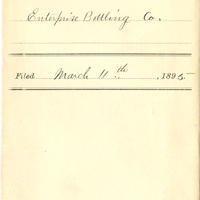 Enterprise Bottling Co.
Filed March 11th, 1895